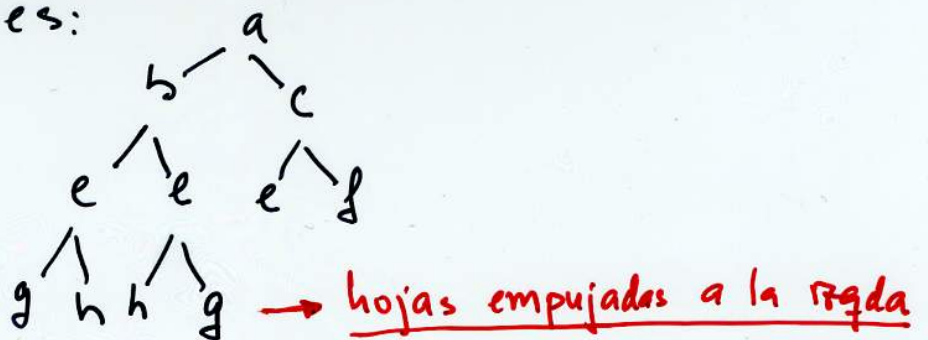 es:
a
b c
e e e f
g h h g → hojas empujadas a la izqda